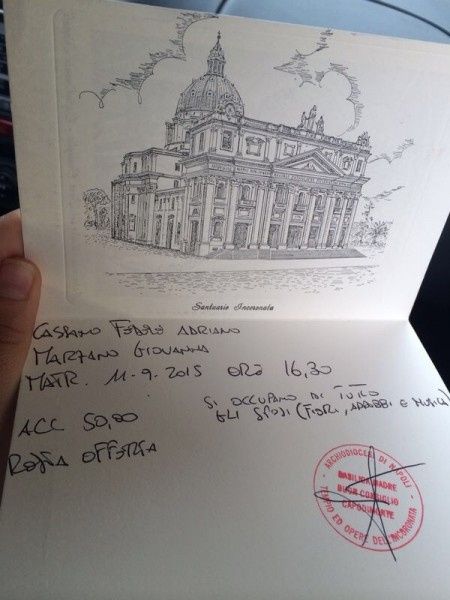 Santuario Incoronata
CASSANO FABRE ADRIANO
MARZANO GIOVANNA
MATR. 11-9-2015 ORE 16,30
SI OCCUPANO DI TUTTO
GLI SPOSI (FIORI, ADDOBBI E MUSICA)
ACC 50,00
OFFERTA
ARCHIDIOCESI DI NAPOLI
BASILICA MADRE
BUON CONSIGLIO
CAPODIMONTE
TEMPIO ED OPERE DELL'INCORONATA